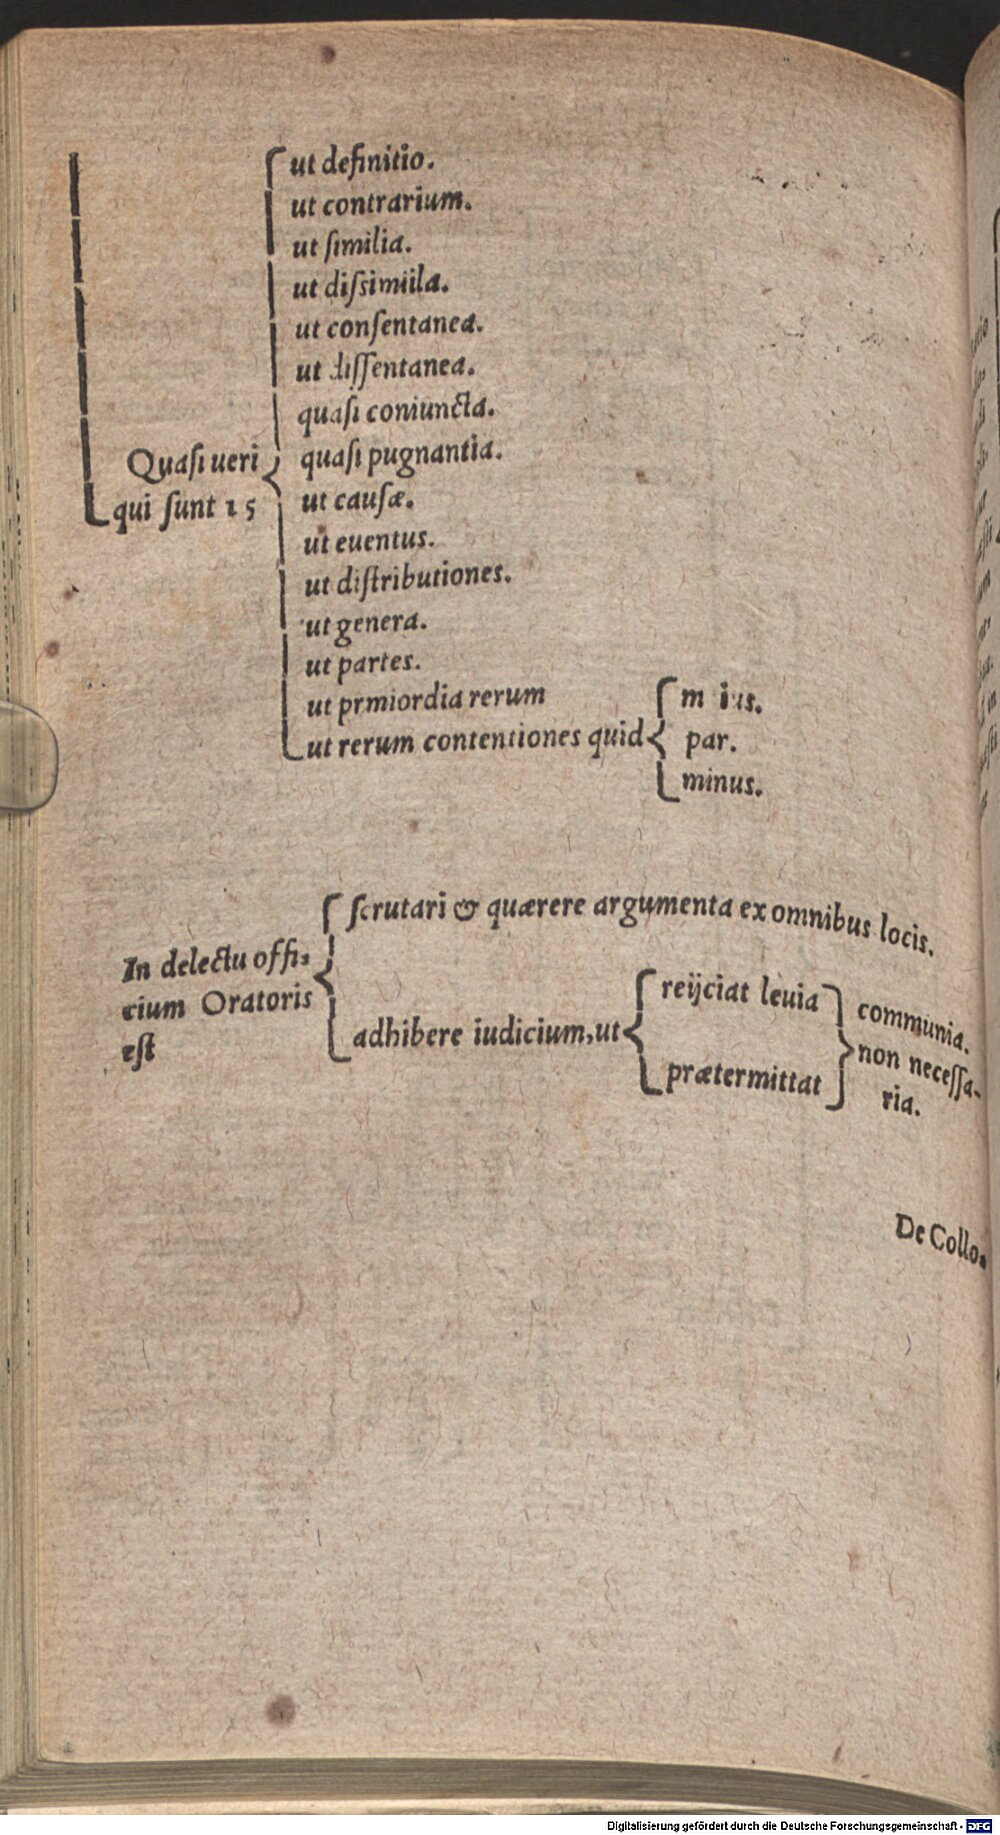 ut definitio.
ut contrarium.
ut ſimilia.
ut diſsimiila.
ut conſentanea.
ut diſſentanea.
quaſi coniuncta.
Quaſi ueri
quaſi pugnantia.
qui ſunt 15
ut cauſæ.
ut euentus.
ut diſtributiones.
ut genera.
ut partes.
ut prmiordia rerum
ut rerum contentiones quid
par.
minus.
ſcrutari & quærere argumenta ex omnibus locis.
In delectu offi-
cium Oratoris
eſt
adhibere iudicium, ut
reijciat leuia
prætermittat
communia.
non neceſſa-
ria.
De Collo-
Digitalisierung gefördert durch die Deutsche Forschungsgemeinschaft - DFG